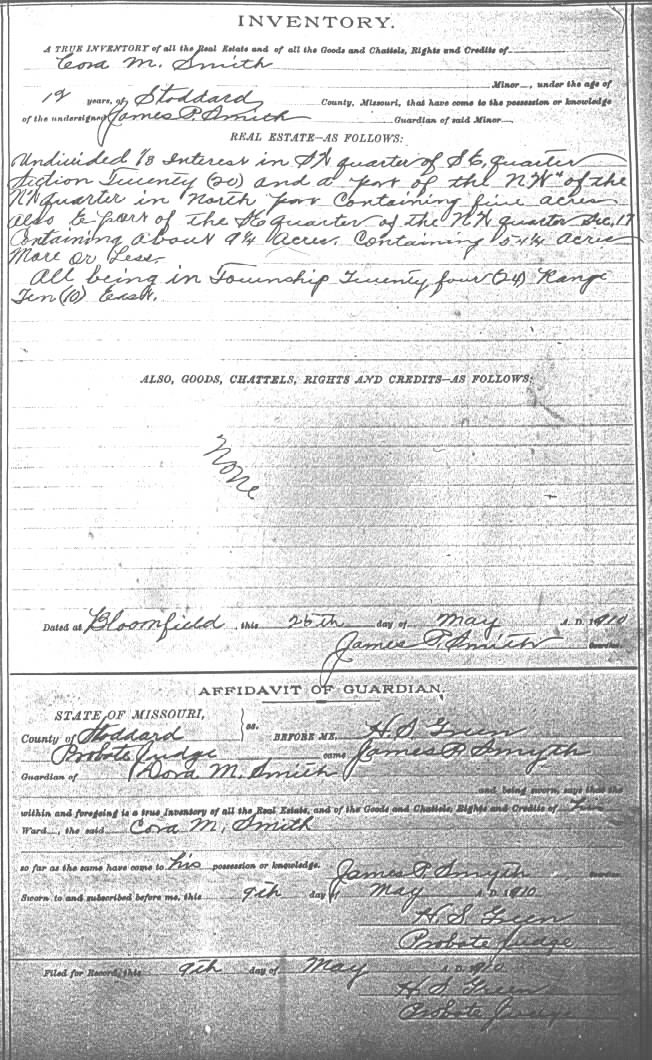 INVENTORY.
A TRUE INVENTORY of all the Real Estate and of all the Goods and Chattels, Rights and Credits of
Cora M. Smith
Minor , under the age of
years, of Stoddard County, Missouri, that have come to the possession or knowledge
of the undersigned James P. Smith Guardian of said Minor .
REAL ESTATE—AS FOLLOWS:
Undivided 1/3 Interest in quarter of S E, quarter
Section Twenty (20) and a part of the N.W of the
quarter in North part Containing five acres
also E part of the quarter of the N W quarter Sec, 17
Containing about 9¼ Acres. Containing acres
More or Less.
All being in Township Twenty four (24) Range
Ten (10) East.
ALSO, GOODS, CHATTELS, RIGHTS AND CREDITS—AS FOLLOWS:
None
Dated at Bloomfield , this day of May A. D. 1910
James P. Smith Guardian.
AFFIDAVIT OF GUARDIAN.
STATE OF MISSOURI,
County of Stoddard ss. BEFORE ME, H. S. Green
Probate Judge came James P. Smyth
Guardian of Dora M. Smith
and being sworn, says that the
within and foregoing is a true Inventory of all the Real Estate, and of the Goods and Chattels, Rights and Credits of his
Ward , the said Cora M. Smith
so far as the same have come to his possession or knowledge. James P. Smyth Guardian.
Sworn to and subscribed before me, this 9th day of May A. D. 1910
H. S. Green
Probate Judge
Filed for Record, this 9th day of May A. D. 1910
H. S. Green
Probate Judge